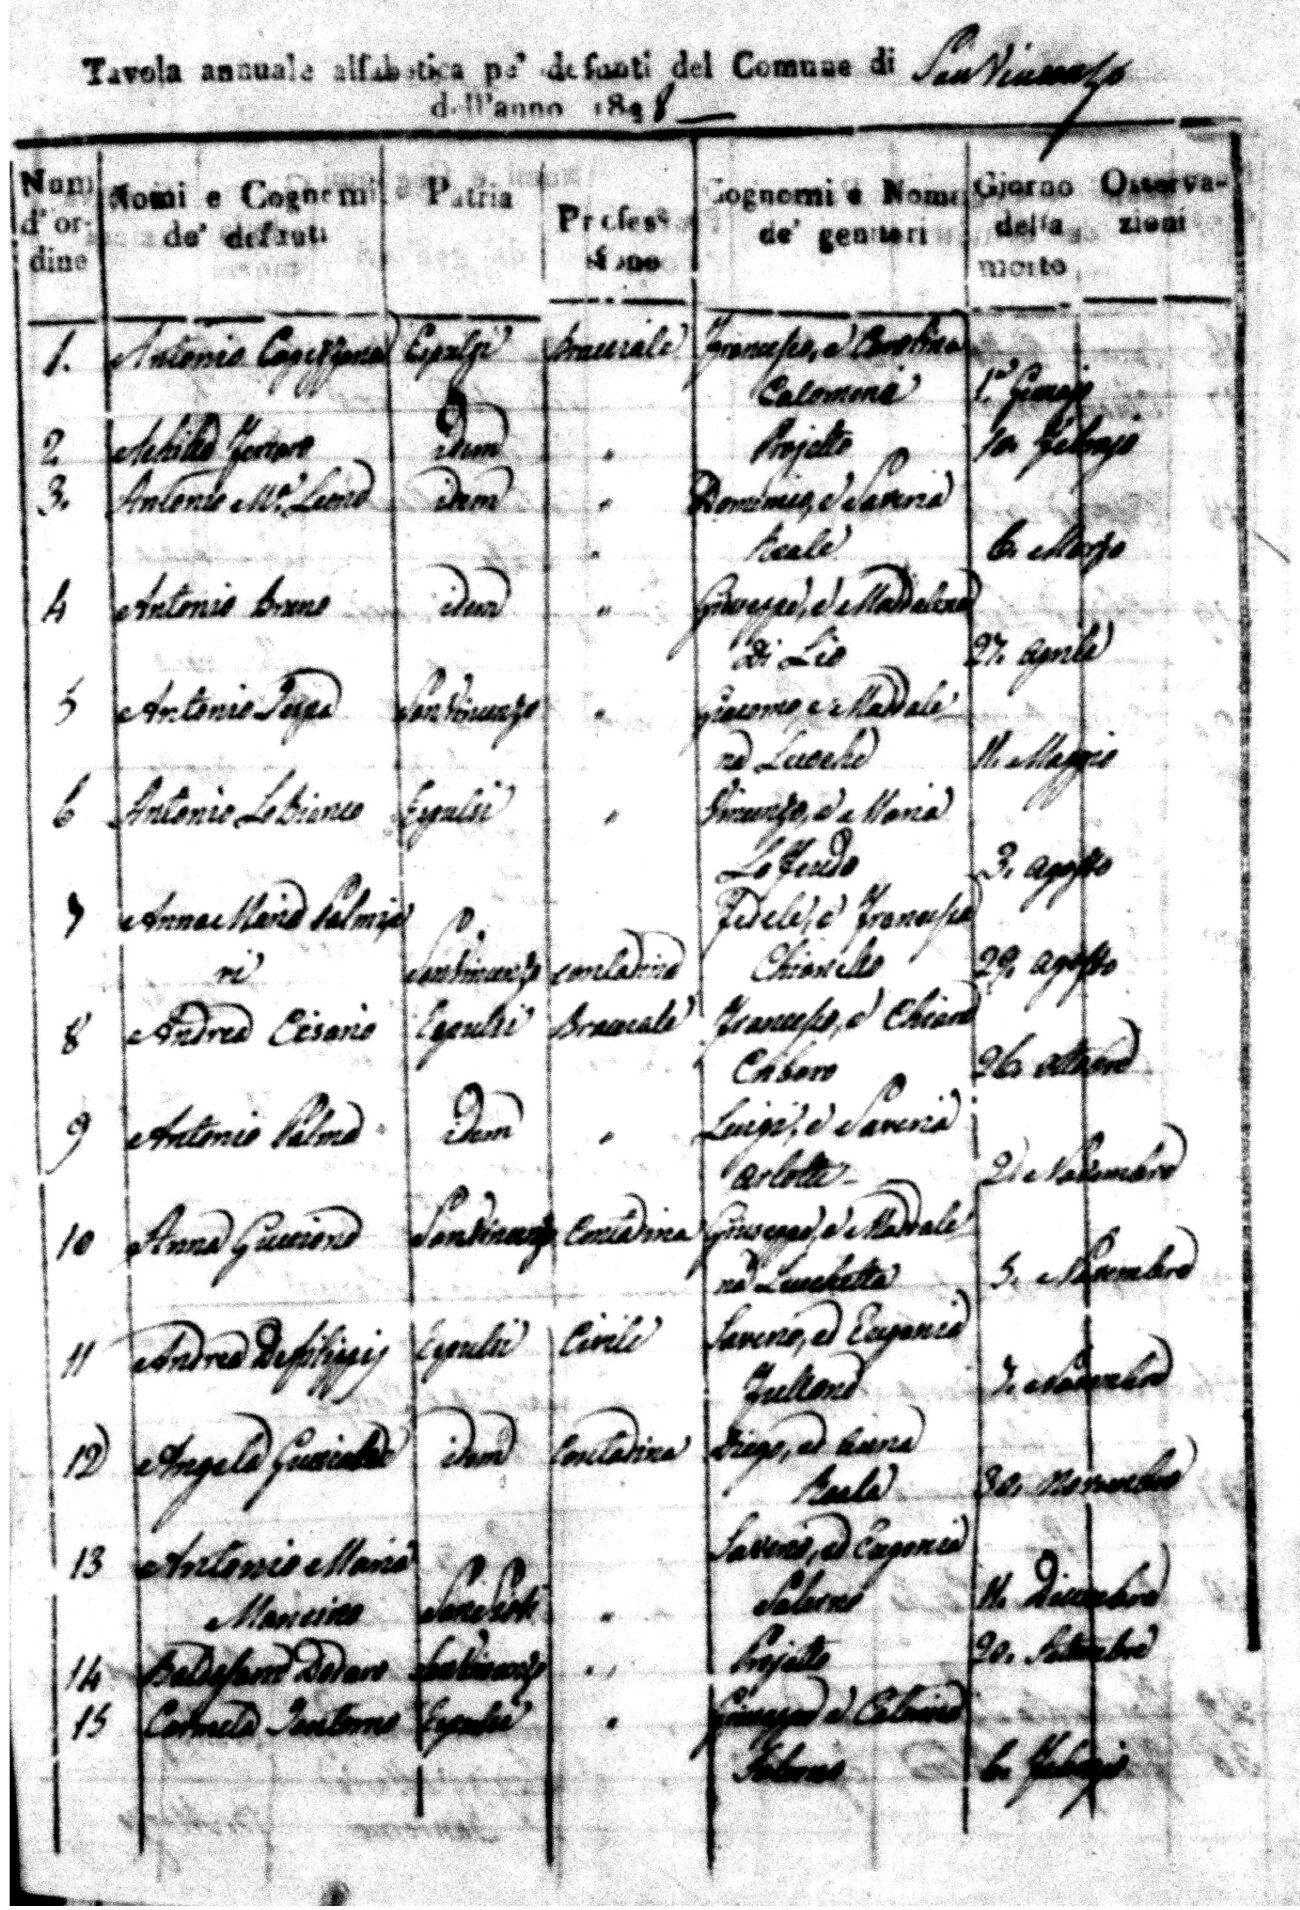 Tavola annuale alfabetica pe' defunti del Comune di San Vincenzo
dell'anno 18
Num. d'ordine Nomi e Cognomi de' defunti Patria Professione Cognomi e Nomi de' genitori Giorno della morte Osservazioni
1. Antonio Espulsi Bracciale Francesco, e Carolina
1. Gennajo
2 Achille idem " Projetto 10. Febrajo
3. Antonio M.ª Leone idem " Domenico, e Saveria
" Reale 6. Marzo
4 Antonio Bruno idem " Giuseppe, e Maddalena
Di Lio 27. aprile
5 Antonio San Vincenzo " Giacomo, e Maddale
na 11. Maggio
6 Antonio Lo Bianco Espulsi " Vincenzo, e Maria
Lo Feudo 3. agosto
7 Anna Maria Palmie Fedele, e Francesca
ri San Vincenzo contadina Chiarello 29. agosto
8 Andrea Cesario Espulsi Bracciale Francesco, e Chiara
26. ottobre
9 Antonio Palma idem " Luigi, e Saveria
Arlotta 2. Novembre
10 Anna Guccione San Vincenzo Contadina Giuseppe, e Maddale
na Lucchetta 5. Novembre
11 Andrea Defilippis Espulsi Civile Saverio, ed Eugenia
7. Novembre
12 Angela idem Contadina Diego, ed Anna
Reale 30. Novembre
13 Antonio Maria Saverio, ed Eugenia
Mancino " Salerno 11. Dicembre
14 Dodaro San Vincenzo " Projetto 20. Settembre
15 Carmela Santorno Espulsi " Giuseppe, e Caterina
6. Febrajo